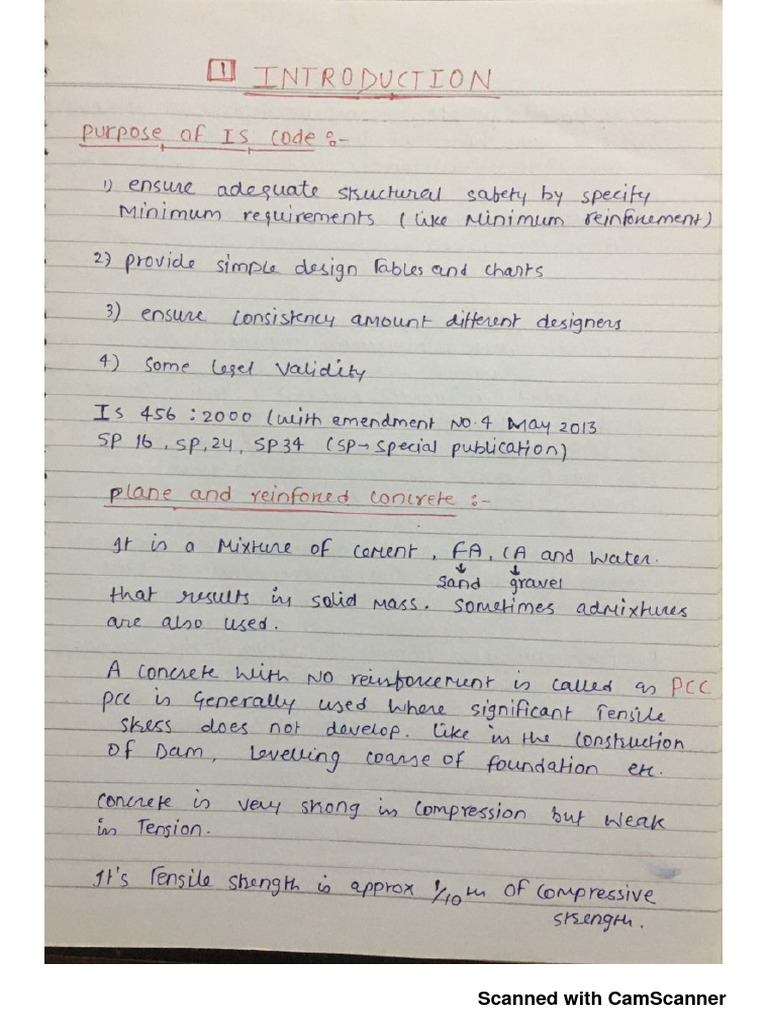 1 INTRODUCTION
purpose of IS code :-
1) ensure adequate structural safety by specify
Minimum requirements (like Minimum reinforcement)
2) provide simple design Tables and charts
3) ensure consistency amount different designers
4) Some legel validity
Is 456 : 2000 (with amendment NO. 4 May 2013
SP 16, SP, 24, SP 34 (SP → Special publication)
plane and reinforced concrete :-
It is a Mixture of cement, FA, CA and water.
↓ ↓
sand gravel
that results in solid mass. sometimes admixtures
are also used.
A concrete with NO reinforcement is called as PCC
pcc is Generally used where significant Tensile
stress does not develop. Like in the construction
of Dam, Levelling coarse of foundation etc.
concrete is very strong in compression but weak
in Tension.
It's Tensile strength is approx 1/10 th of compressive
strength.
Scanned with CamScanner